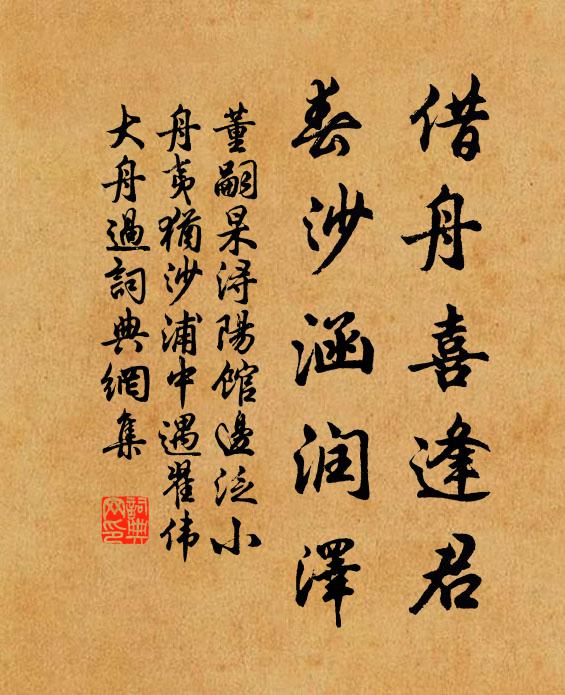 借舟喜逢君
春沙涵润澤
董嗣杲浔陽館邊泛小
舟夷猶沙浦中遇翟伟
大舟過詞典網集
詞典网印